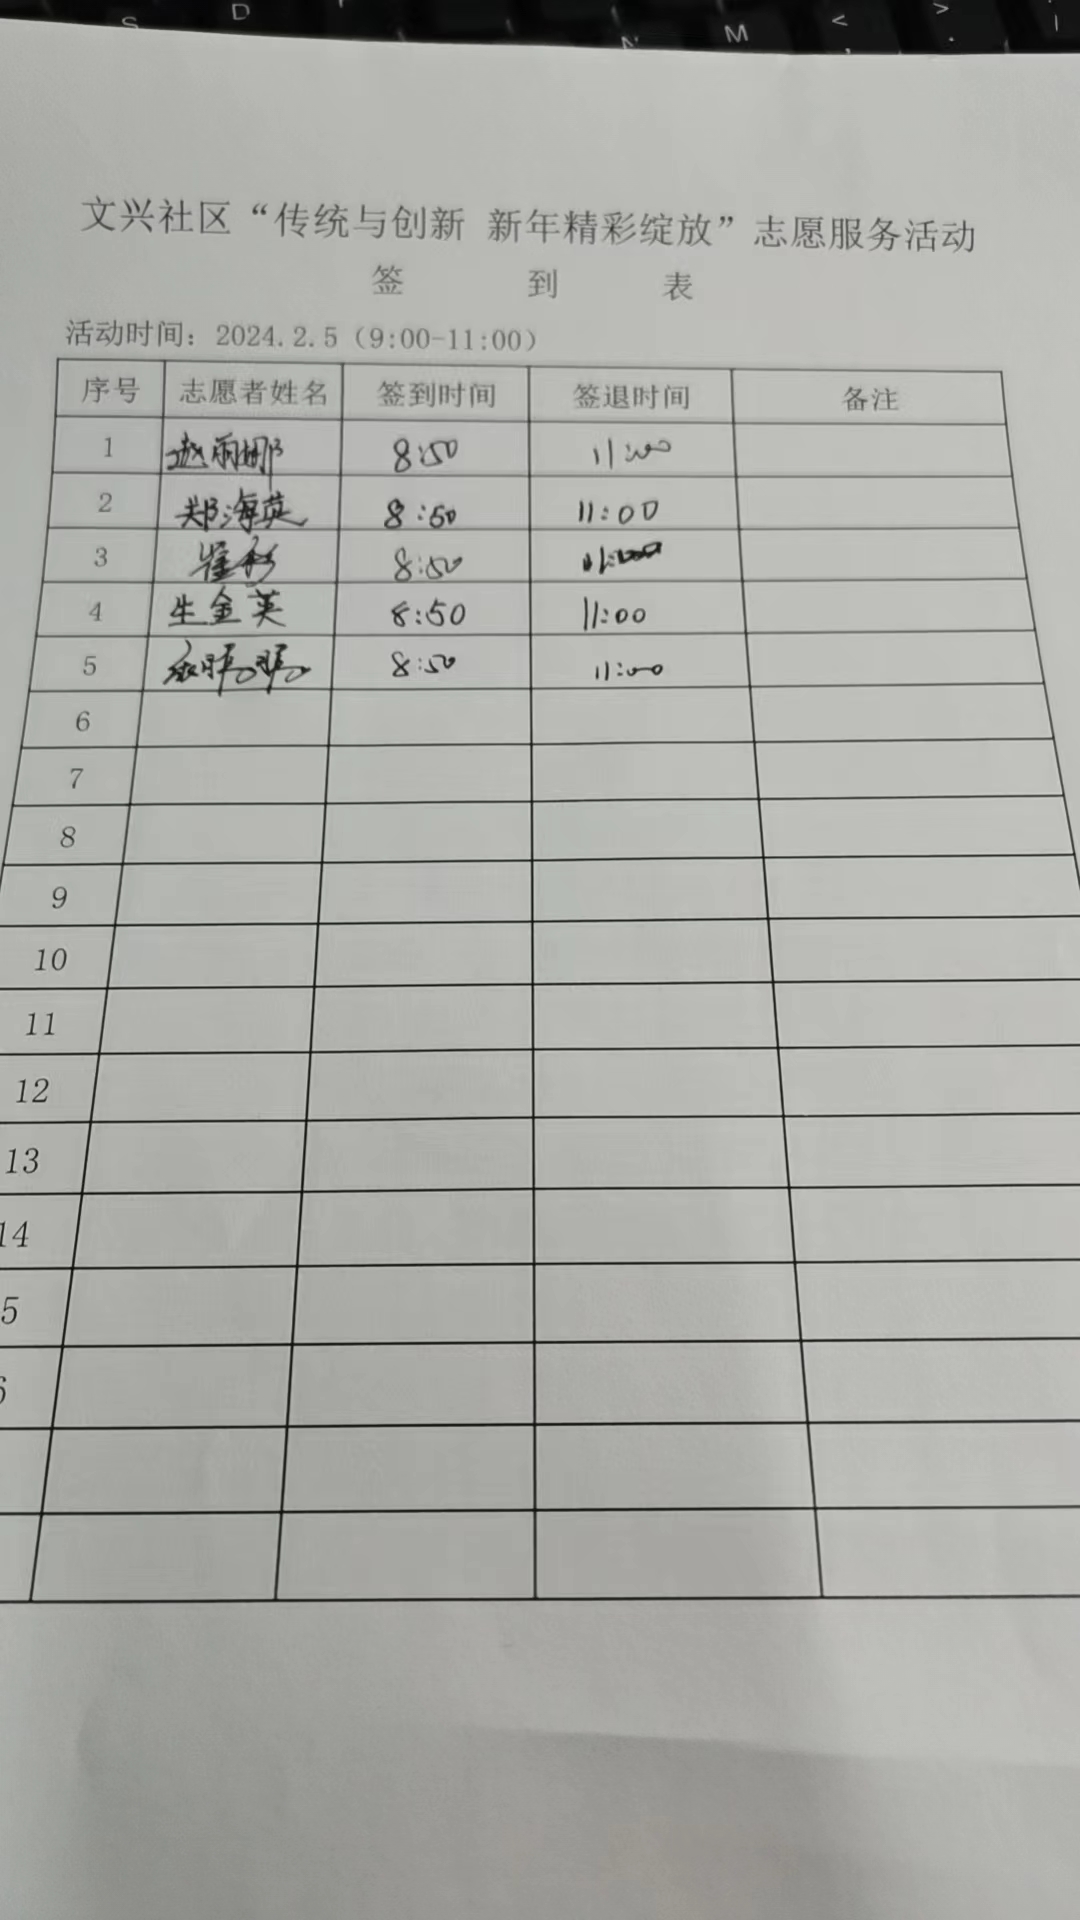 S D M < >
文兴社区“传统与创新 新年精彩绽放”志愿服务活动
签 到 表
活动时间：2024.2.5（9:00-11:00）
序号 志愿者姓名 签到时间 签退时间 备注
1 赵丽娜 8:50 11:00
2 郑海英 8:50 11:00
3 崔彩 8:50 11:00
4 生金英 8:50 11:00
5 8:50 11:00
6
7
8
9
10
11
12
13
14
5
6